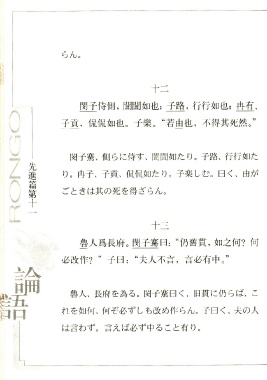 らん。
十二
閔子侍側，誾誾如也；子路，行行如也；冉有、
子貢，侃侃如也。子樂。“若由也，不得其死然。”
閔子騫、側らに侍す、誾誾如たり。子路、行行如た
り。冉子、子貢、侃侃如たり。子楽しむ。曰く、由が
ごときは其の死を得ざらん。
十三
魯人爲長府。閔子騫曰：“仍舊貫，如之何？何
必改作？”子曰：“夫人不言，言必有中。”
魯人、長府を為る。閔子騫曰く、旧貫に仍らば、こ
れを如何、何ぞ必ずしも改め作らん。子曰く、夫の人
は言わず。言えば必ず中ること有り。
RONGO
先進篇第十一
論語